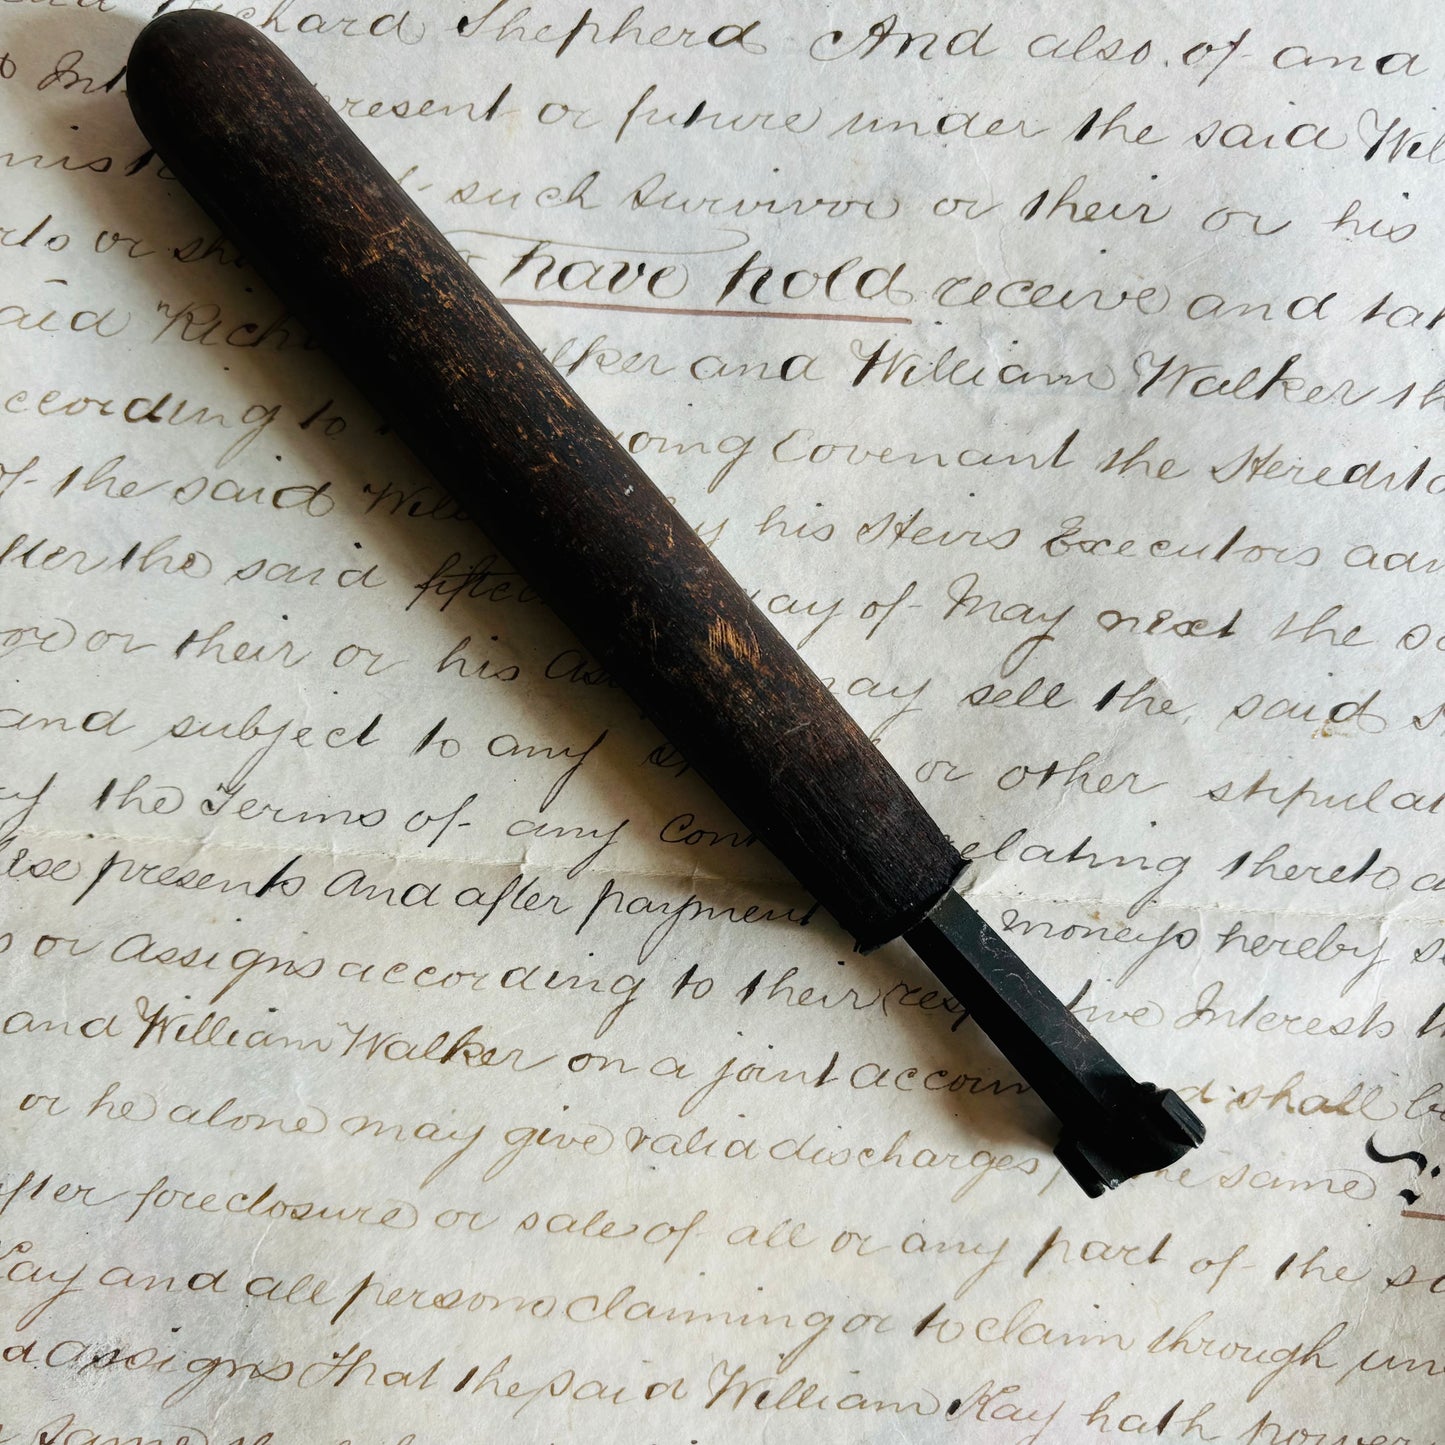 Richard Shepherd And also of and
present or future under the said
such survivor or their or his
or have hold receive and
said and William Walker
according to Covenant the
of the said his Heirs Executors
after the said of May next the
or their or his may sell the said
and subject to any or other
the Terms of any relating thereto
presents And after payment moneys hereby
or Assigns according to their Interests
and William Walker on a joint shall
or he alone may give valid discharges the same
after foreclosure or sale of all or any part of the
Kay and all persons claiming or to claim through
Assigns That the said William Kay hath power
same